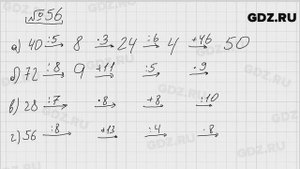 GDZ.RU
№56
а) 40 :5 8 ·3 24 :6 4 +46 50
б) 72 :8 9 +11 :5 ·9
в) 28 :7 ·8 +8 :10
г) 56 :8 +13 :4 ·8
GDZ.RU